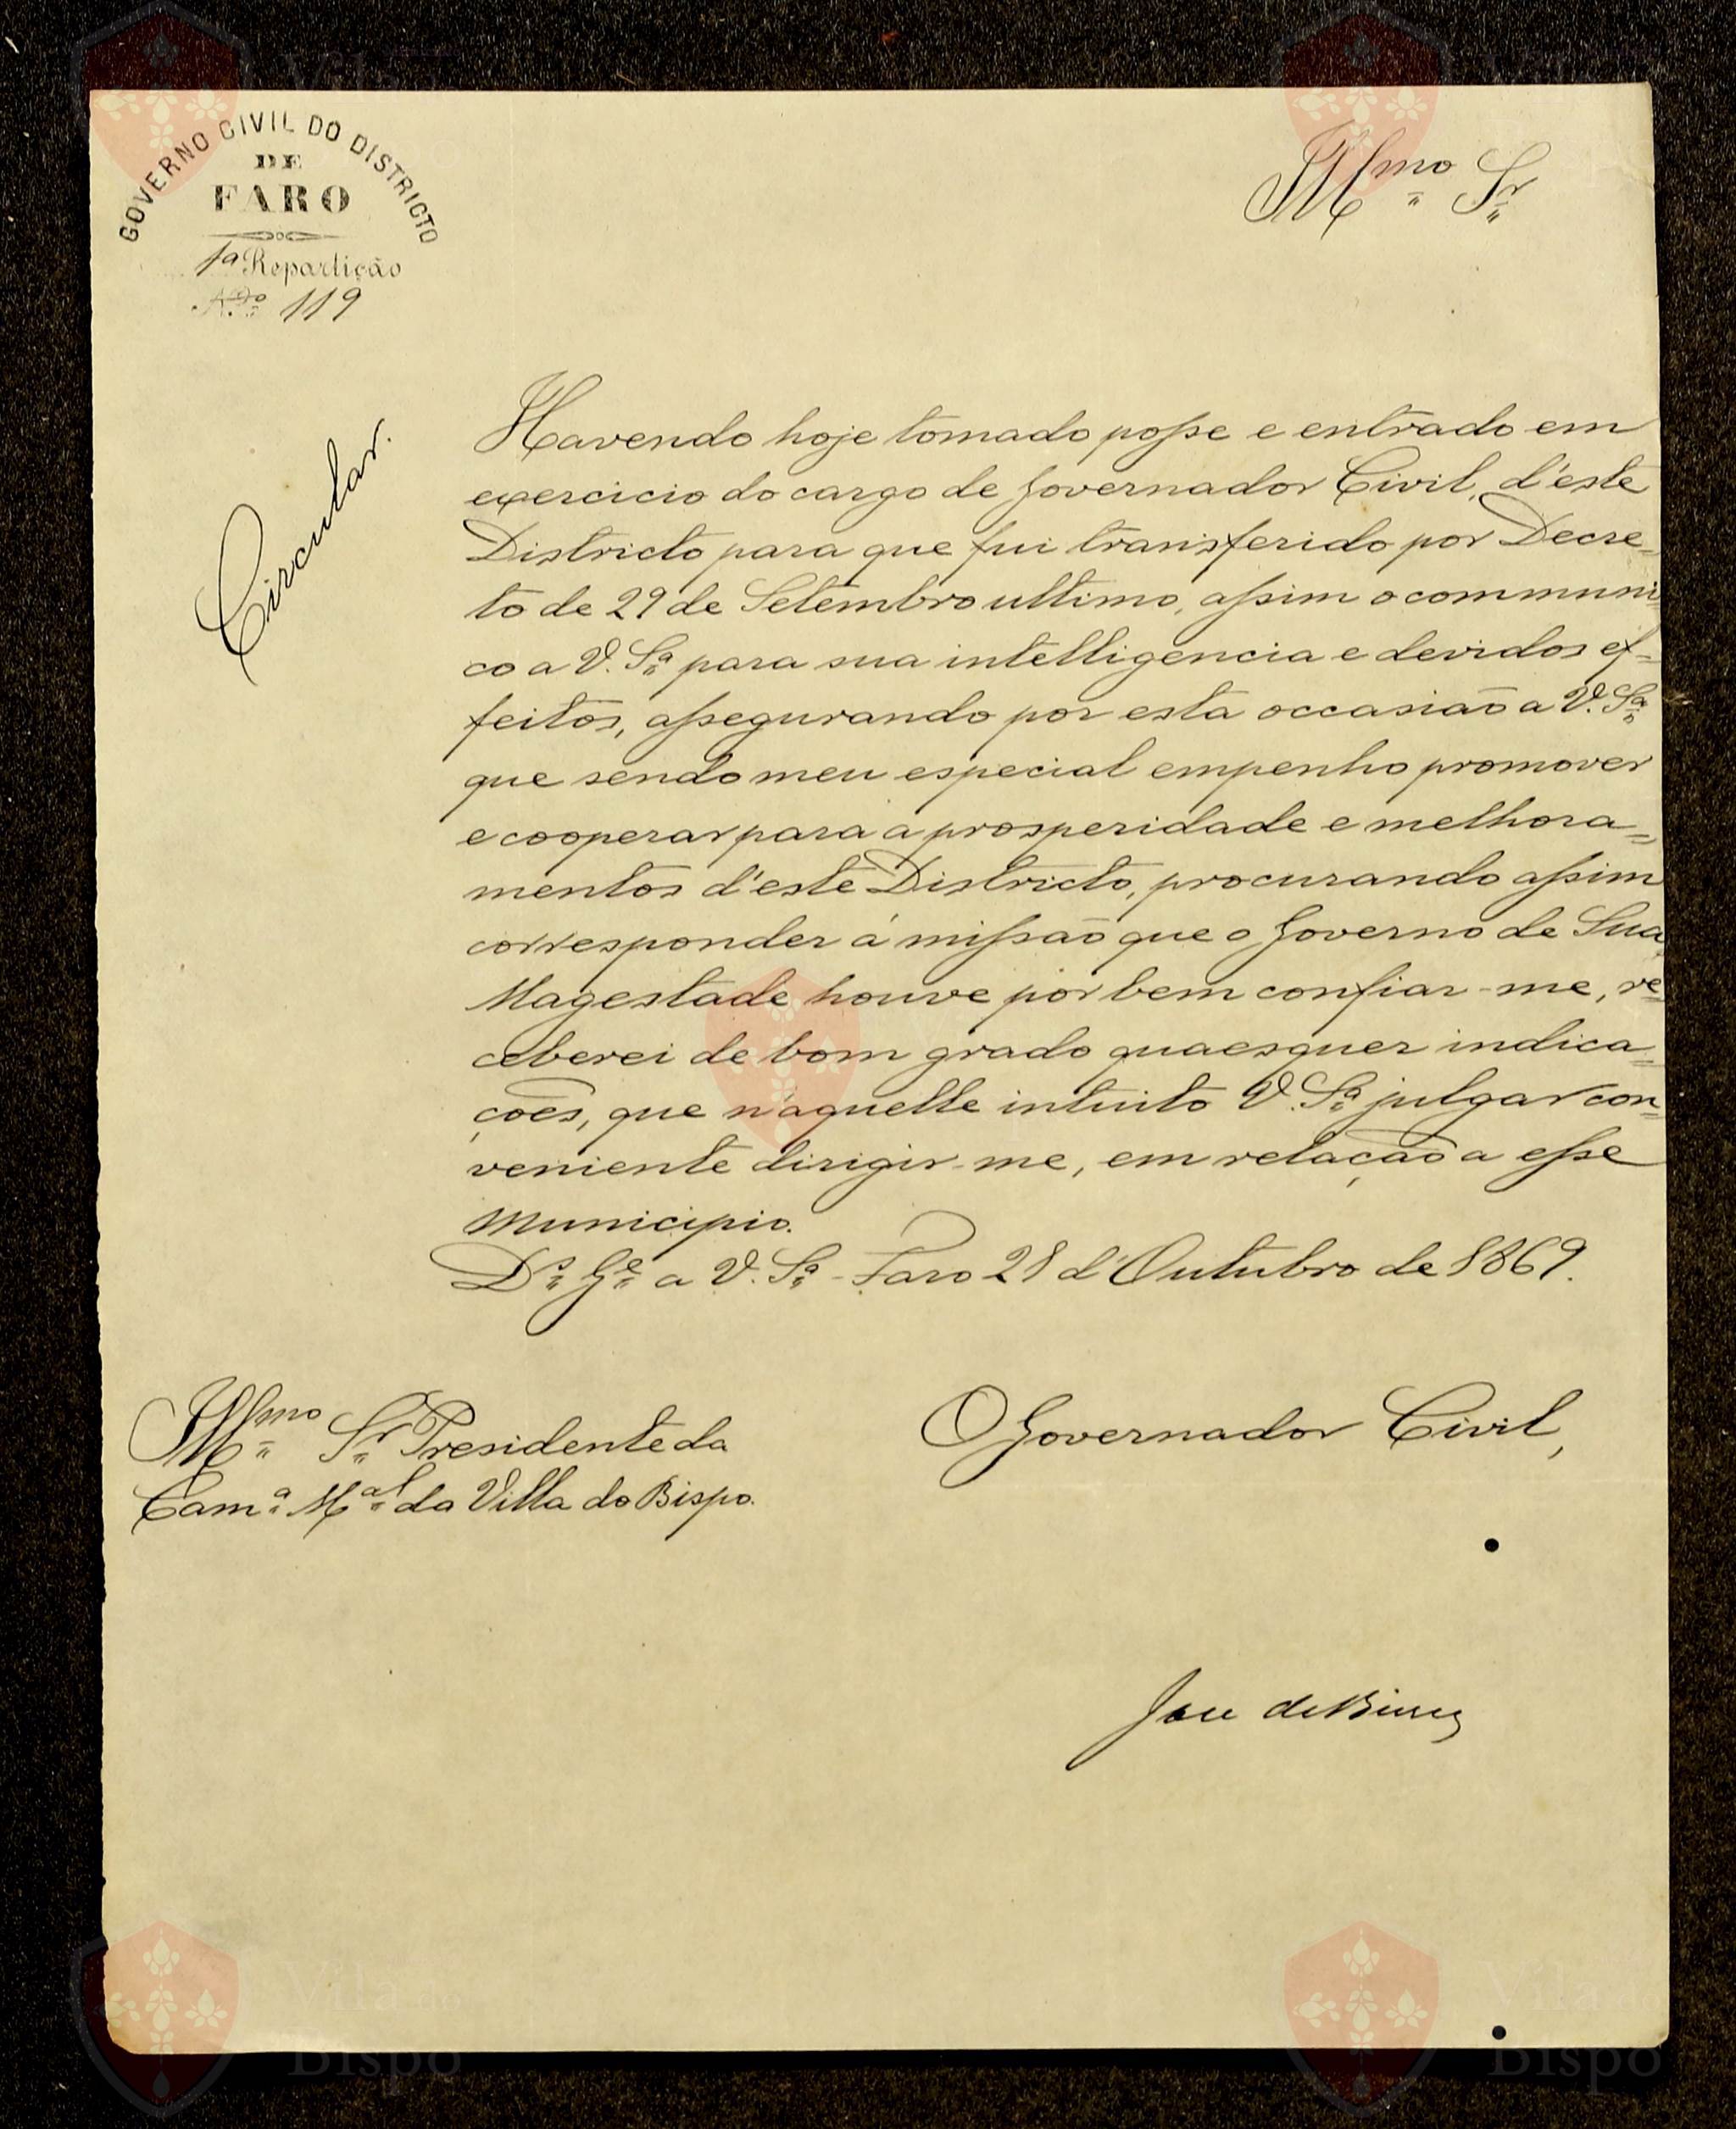 GOVERNO CIVIL DO DISTRICTO
DE
FARO
1ª Repartição
N.º 119
Illmo Sr
Circular.
Havendo hoje tomado posse e entrado em
exercicio do cargo de Governador Civil, d'este
Districto para que fui transferido por Decre=
to de 29 de Setembro ultimo, assim o communi
co a V. Sª para sua intelligencia e devidos ef=
feitos, assegurando por esta occasião a V. Sª
que sendo meu especial empenho promover
e cooperar para a prosperidade e melhora=
mentos d'este Districto, procurando assim
corresponder á missão que o Governo de Sua
Magestade houve por bem confiar-me, re=
ceberei de bom grado quaesquer indica=
ções, que n'aquelle intuito V. Sª julgar con=
veniente dirigir-me, em relação a esse
Municipio.
Ds Ge a V. Sª - Faro 28 d'Outubro de 1869.
Illmo Sr Presidente da
Camª Mal da Villa do Bispo.
O Governador Civil,
José de
Vila do
Bispo
Vila do
Bispo